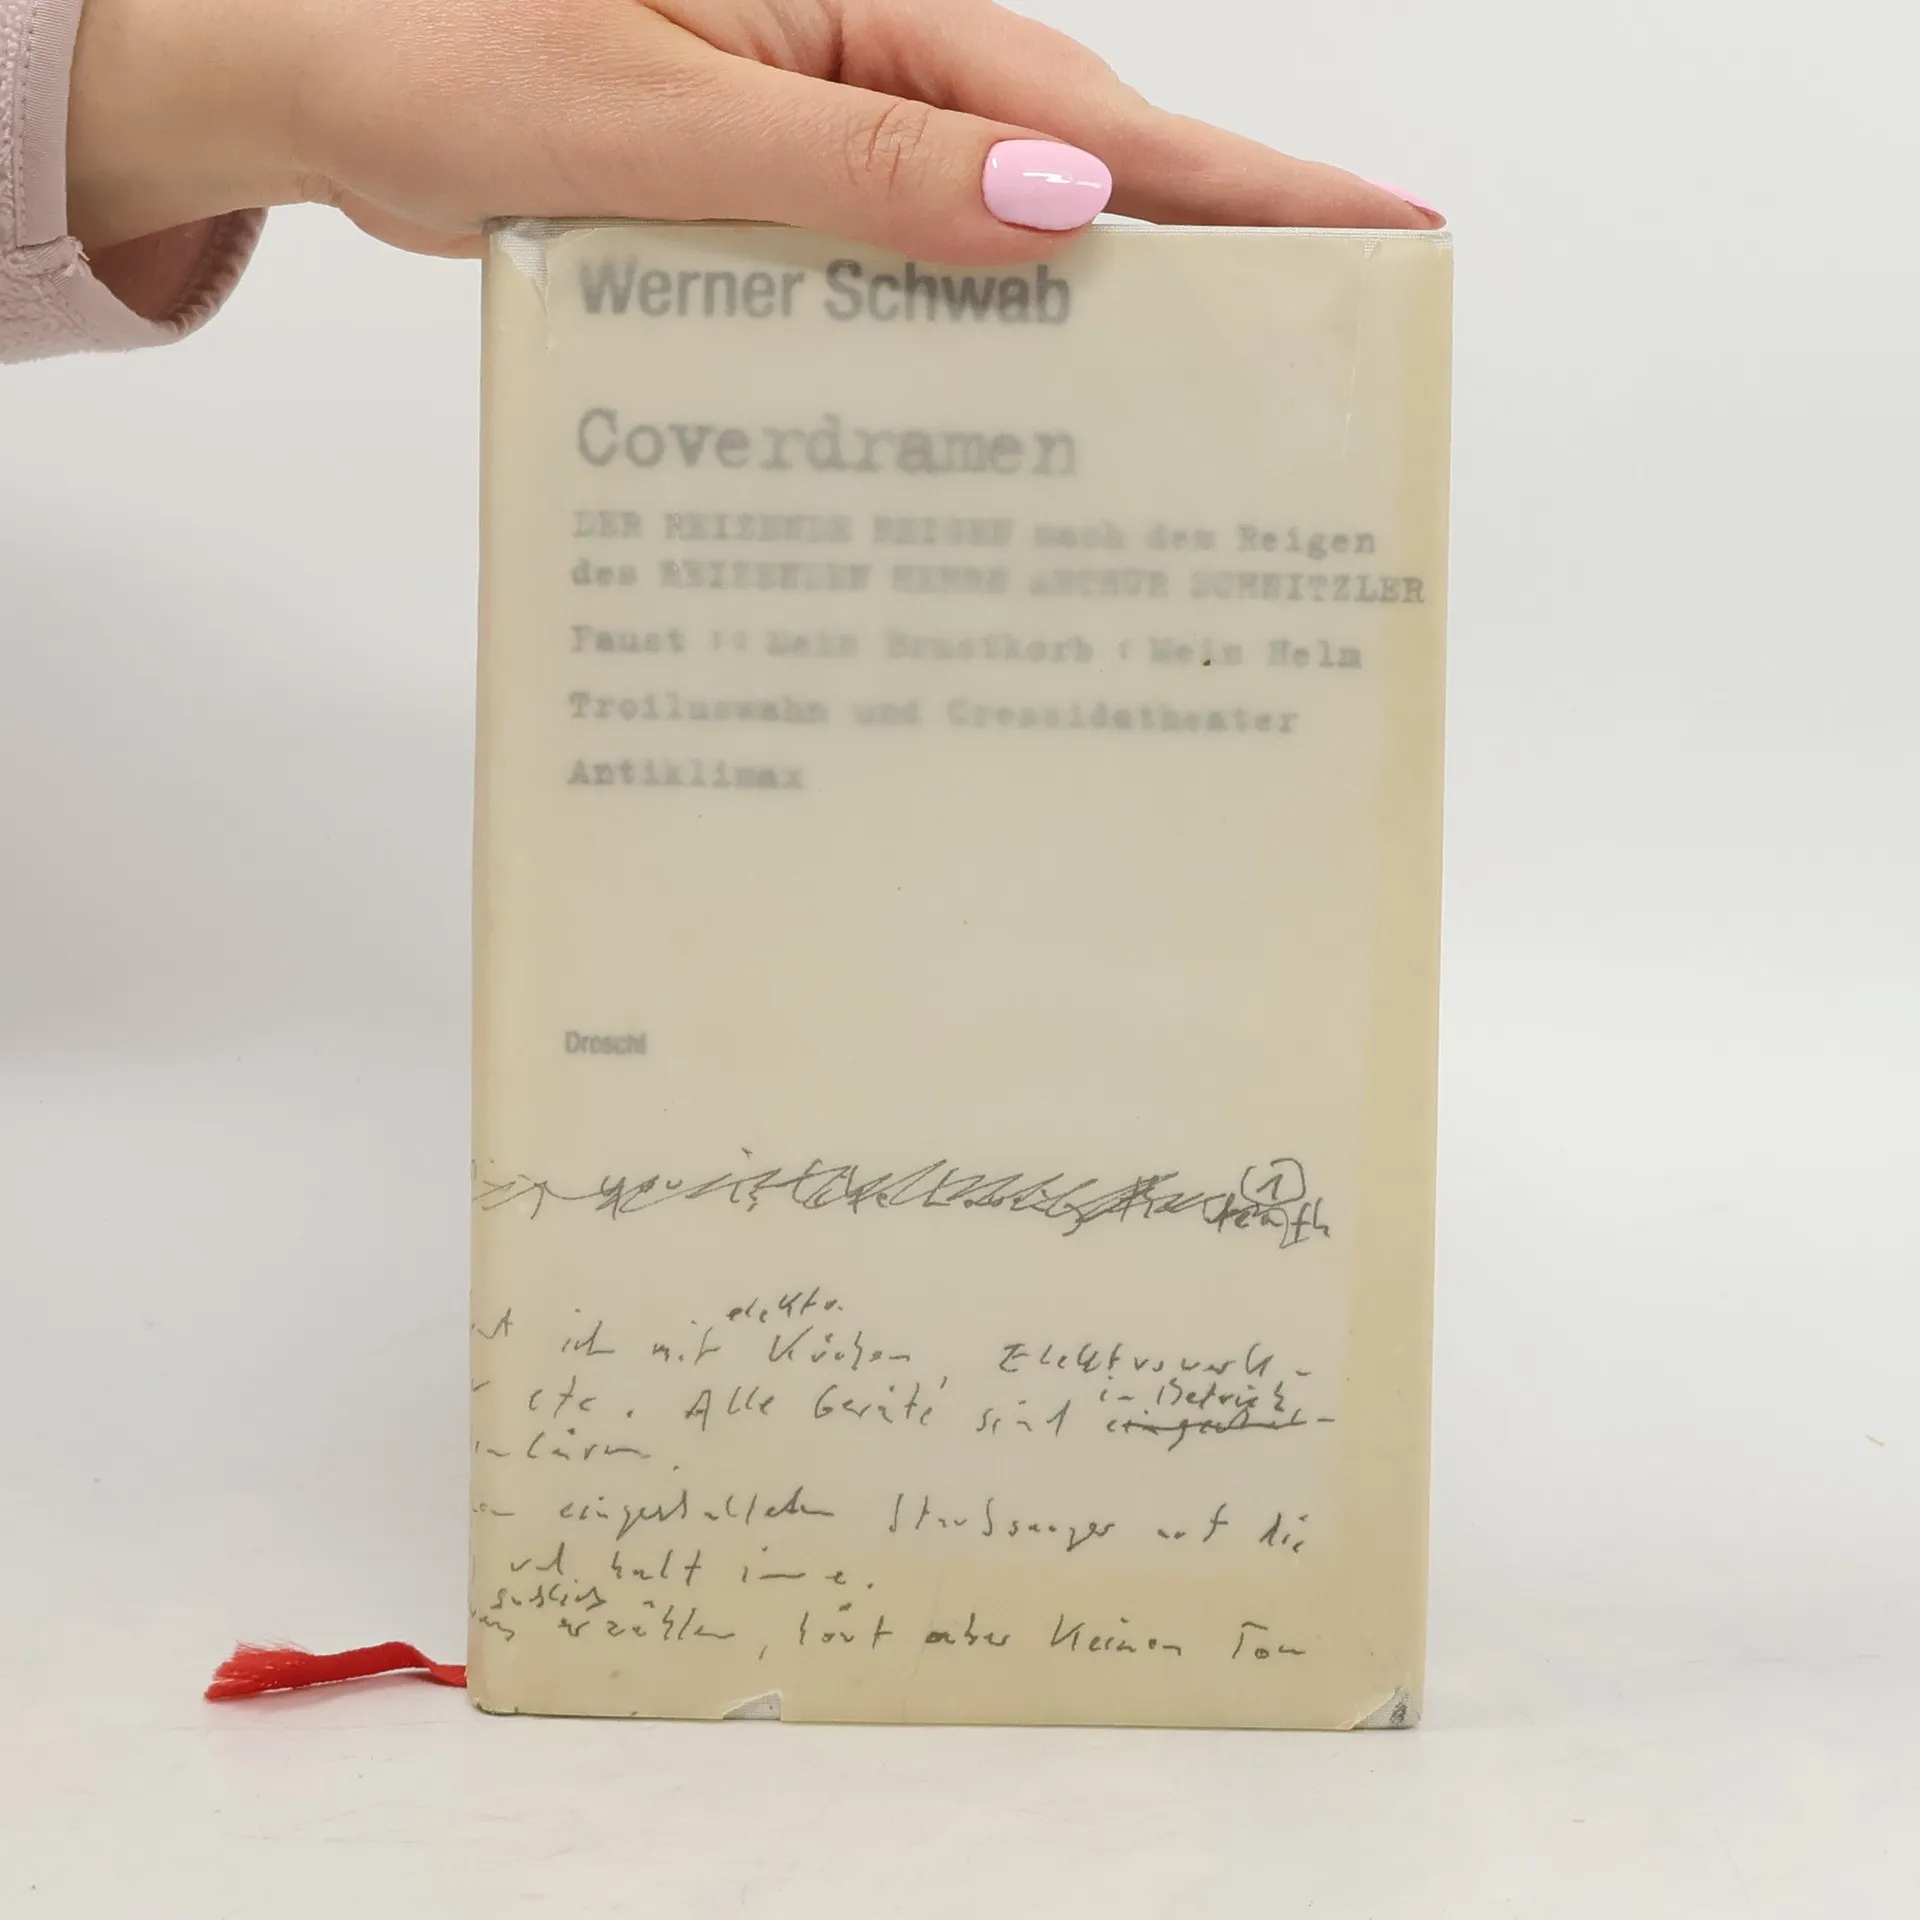 Werner Schwab
Coverdramen
DER REIZENDE REIGEN nach dem Reigen
des REIZENDEN HERRN ARTHUR SCHNITZLER
Faust :: Mein Brustkorb : Mein Helm
Troiluswahn und Cressidatheater
Antiklimax
Droschl
1
elektr.
ich mit Küchen, Elektrowerk-
in Betrieb,
etc. Alle Geräte sind
Lärm.
eingeschalteten Staubsauger auf die
und hält inne.
erzählen, hört aber keinen Ton